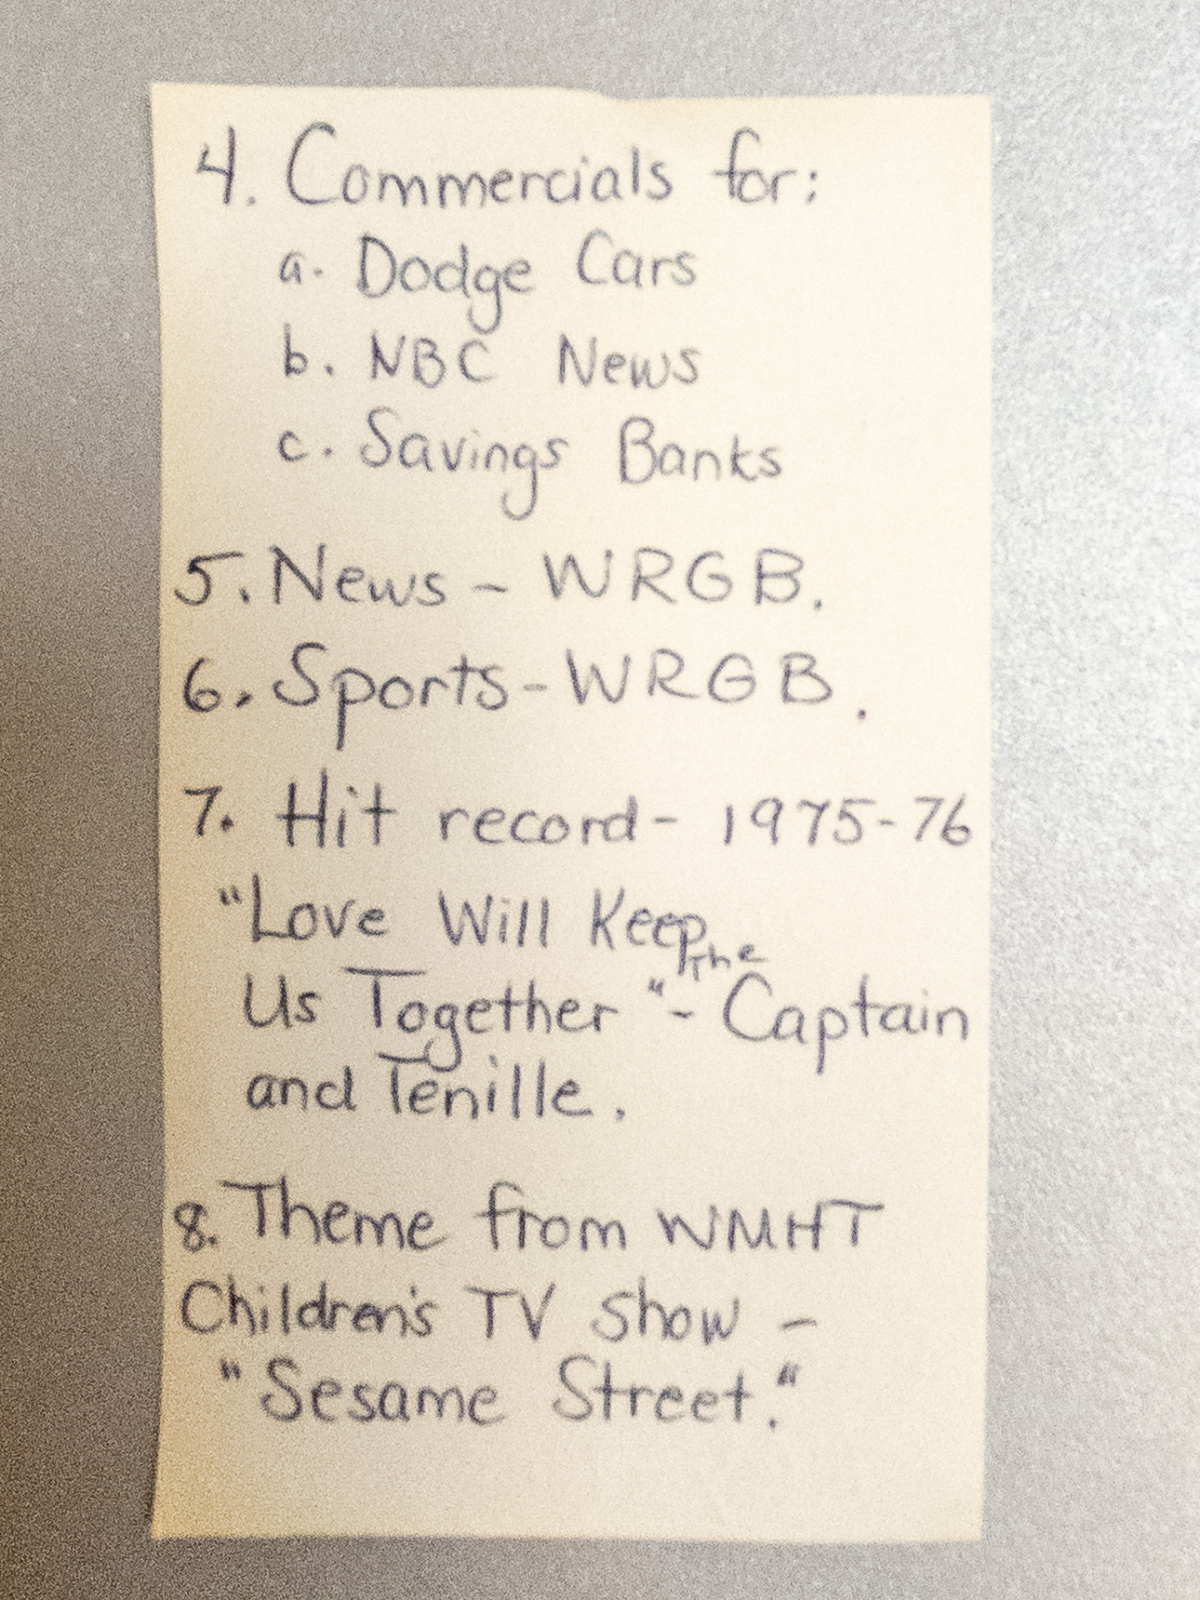 4. Commercials for:
a. Dodge Cars
b. NBC News
c. Savings Banks
5. News - WRGB.
6. Sports - WRGB.
7. Hit record - 1975-76
"Love Will Keep
Us Together" - The Captain
and Tenille.
8. Theme from WMHT
Children's TV show -
"Sesame Street."